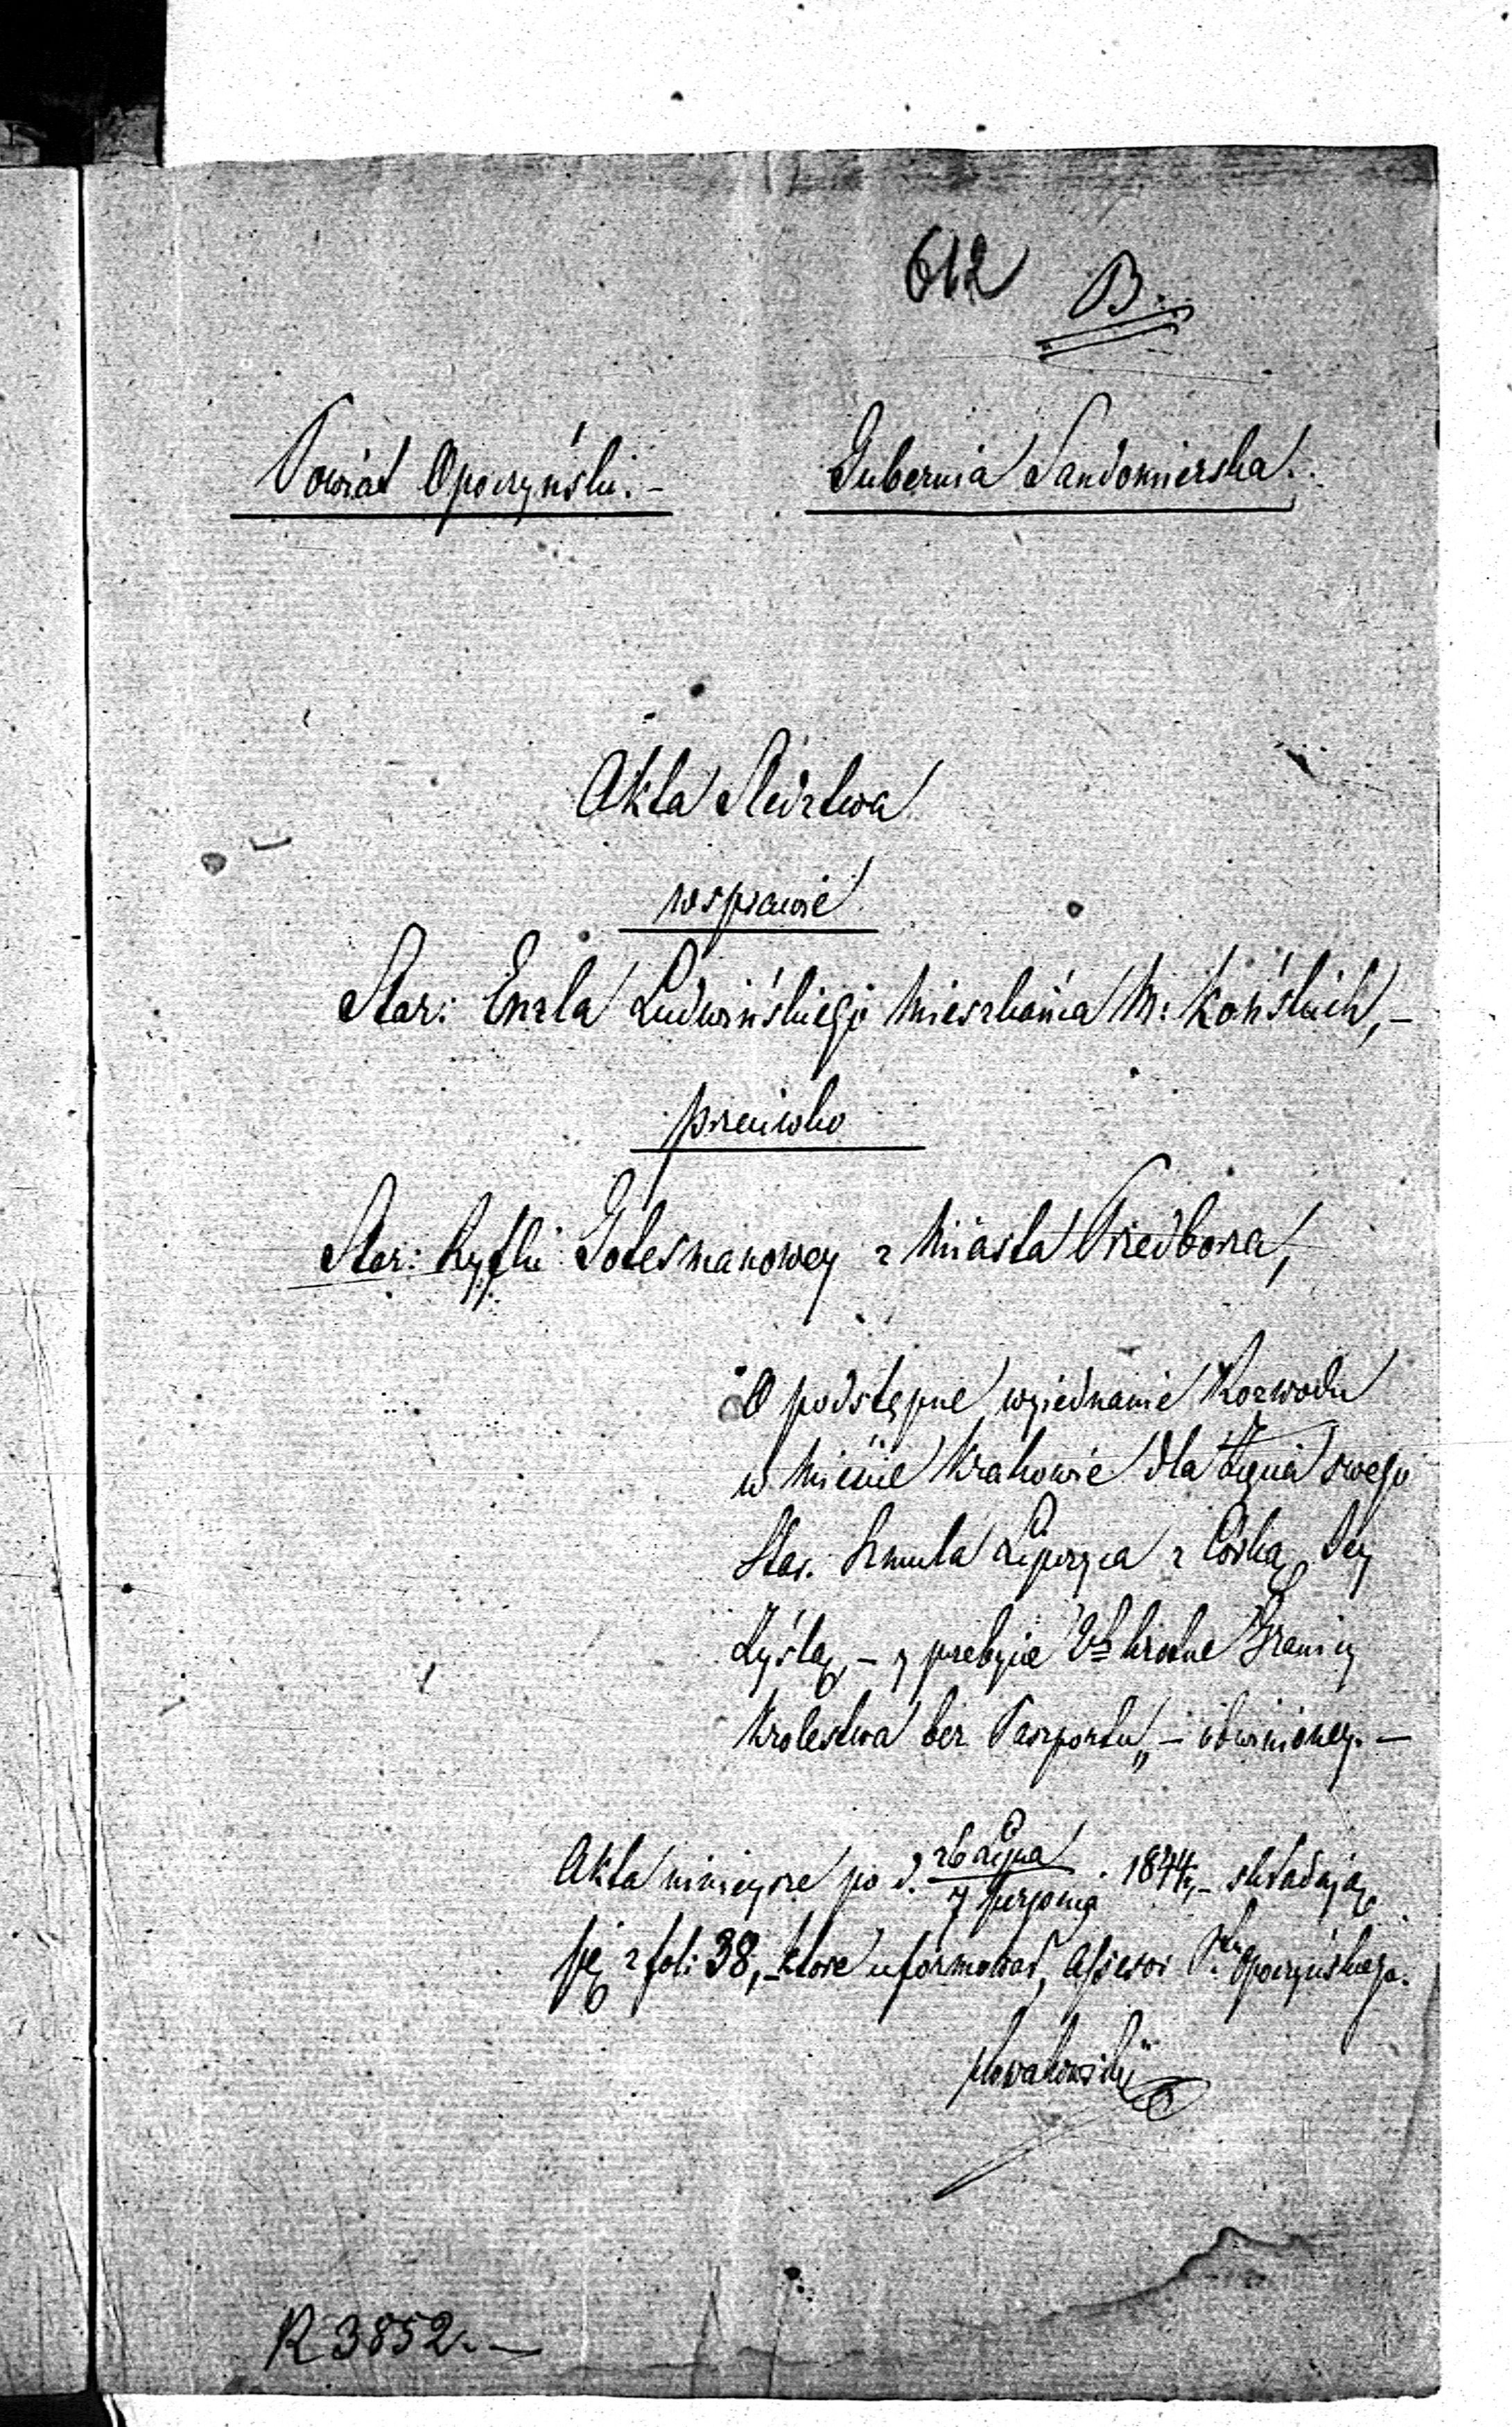 612 B.
Powiat Opoczyński. - Gubernia Sandomierska.
Akta Sledztwa
wsprawie
Star: Enzla Ludwińskiego Mieszkańca M: Końskich, -
przeciwko
Star: Ryfki Gotesmanowey z Miasta Przedborza,
O podstępne wyiednanie Rozwodu
w Mieście Krakowie dla Zięcia swego
Star. Szmula Lipszyca z Córką Jey
Zyślą, - y przebycie 2ch krotne Granicy
Krolestwa bez Paszportu, - obwinioney. -
Akta ninieysze po d. 26 Lipca / 7 Sierpnia 1844, - składają
się z foli 38, - ktore uformował, Assessor Ptu Opoczyńskiego.
Nowakowski
R 3852. -